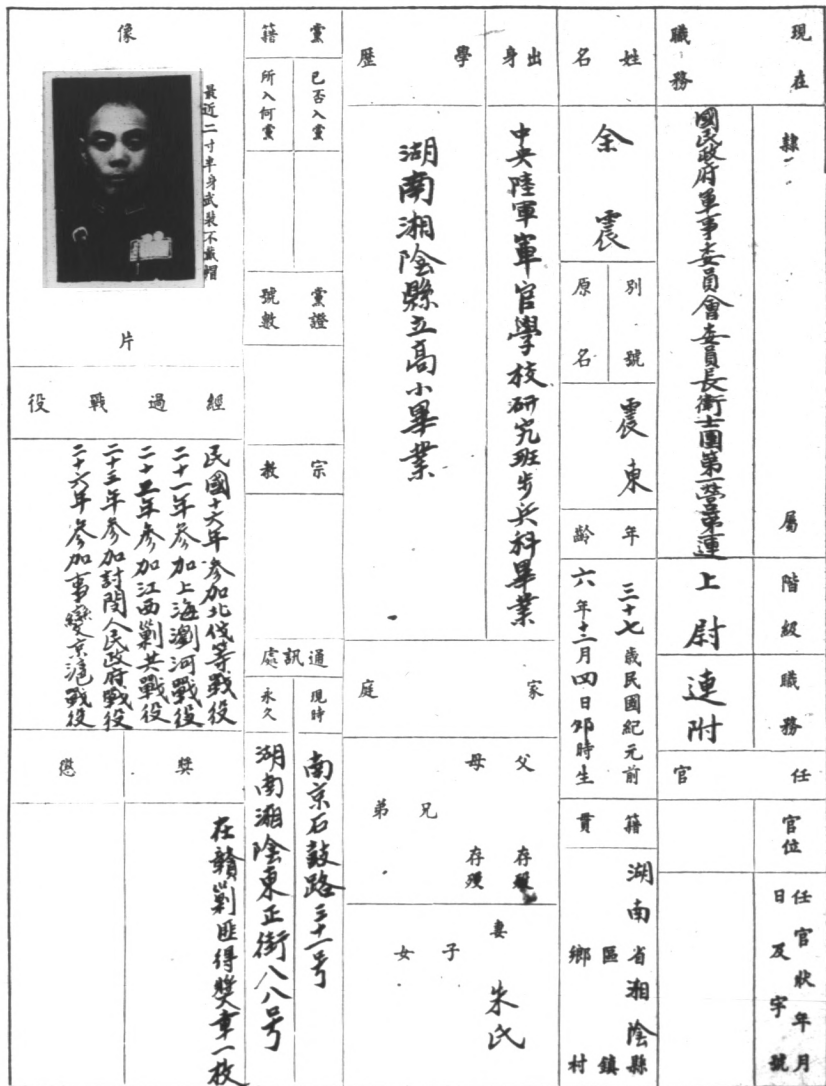 現在職務
隸屬
國民政府軍事委員會委員長衛士團第一營第連
階級
上尉
職務
連附
任官
官位
任官狀年月日及字號
姓名
余震
別號
原名
震東
年齡
三十七歲民國紀元前
六年十二月四日卯時生
籍貫
湖南省湘陰縣
區鎮
鄉村
出身
中央陸軍軍官學校研究班步兵科畢業
學歷
湖南湘陰縣立高小畢業
家庭
父存歿
母存歿
兄
弟
妻
朱氏
子
女
黨籍
已否入黨
所入何黨
黨證號數
宗教
通訊處
現時
南京石鼓路三十一号
永久
湖南湘陰東正街八八号
像片
最近二寸半身武裝不戴帽
經過戰役
民國十六年參加北伐等戰役
二十一年參加上海瀏河戰役
二十五年參加江西剿共戰役
二十三年參加討閩人民政府戰役
二十六年參加事變京滬戰役
獎
在贛剿匪得獎章一枚
懲